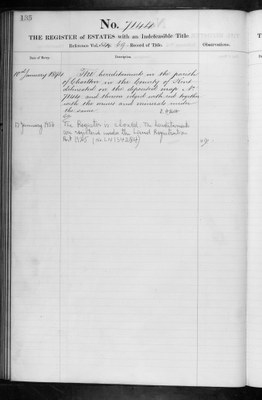 135
No. 7144
THE REGISTER of ESTATES with an Indefeasible Title.
Reference Vol. 69. Record of Title.
Observations.
Date of Entry.
Description
10th January 1894
The hereditaments in the parish
of Charlton in the County of Kent
delineated on the deposited map No.
7144 and thereon edged with red together
with the mines and minerals under
the same.
15 January 1926
The Register is closed. The hereditaments
are registered under the Land Registration
Act 1925